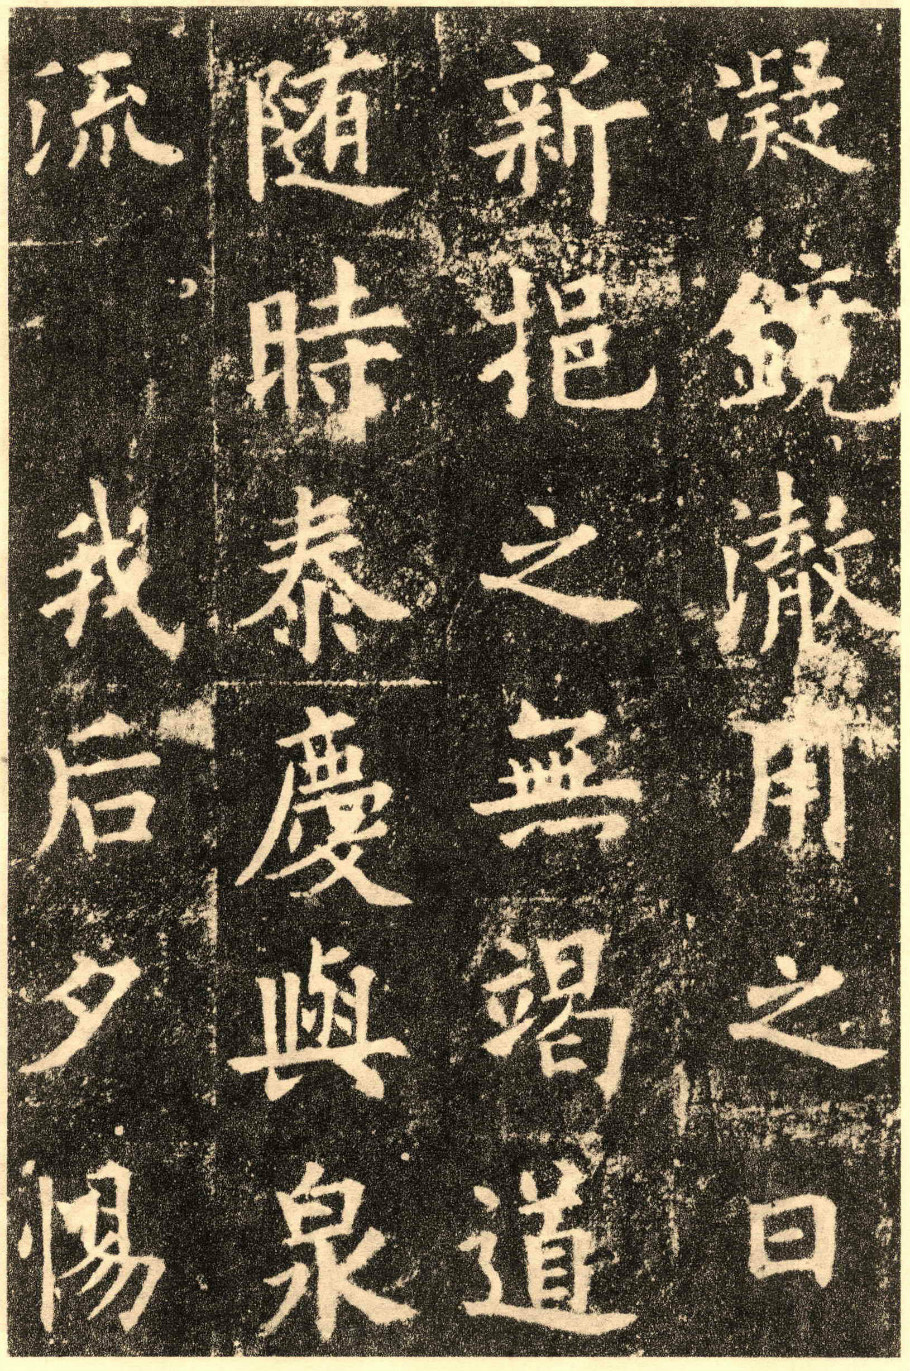 凝鏡澈用之日
新挹之無竭道
随時泰慶與泉
流我后夕惕